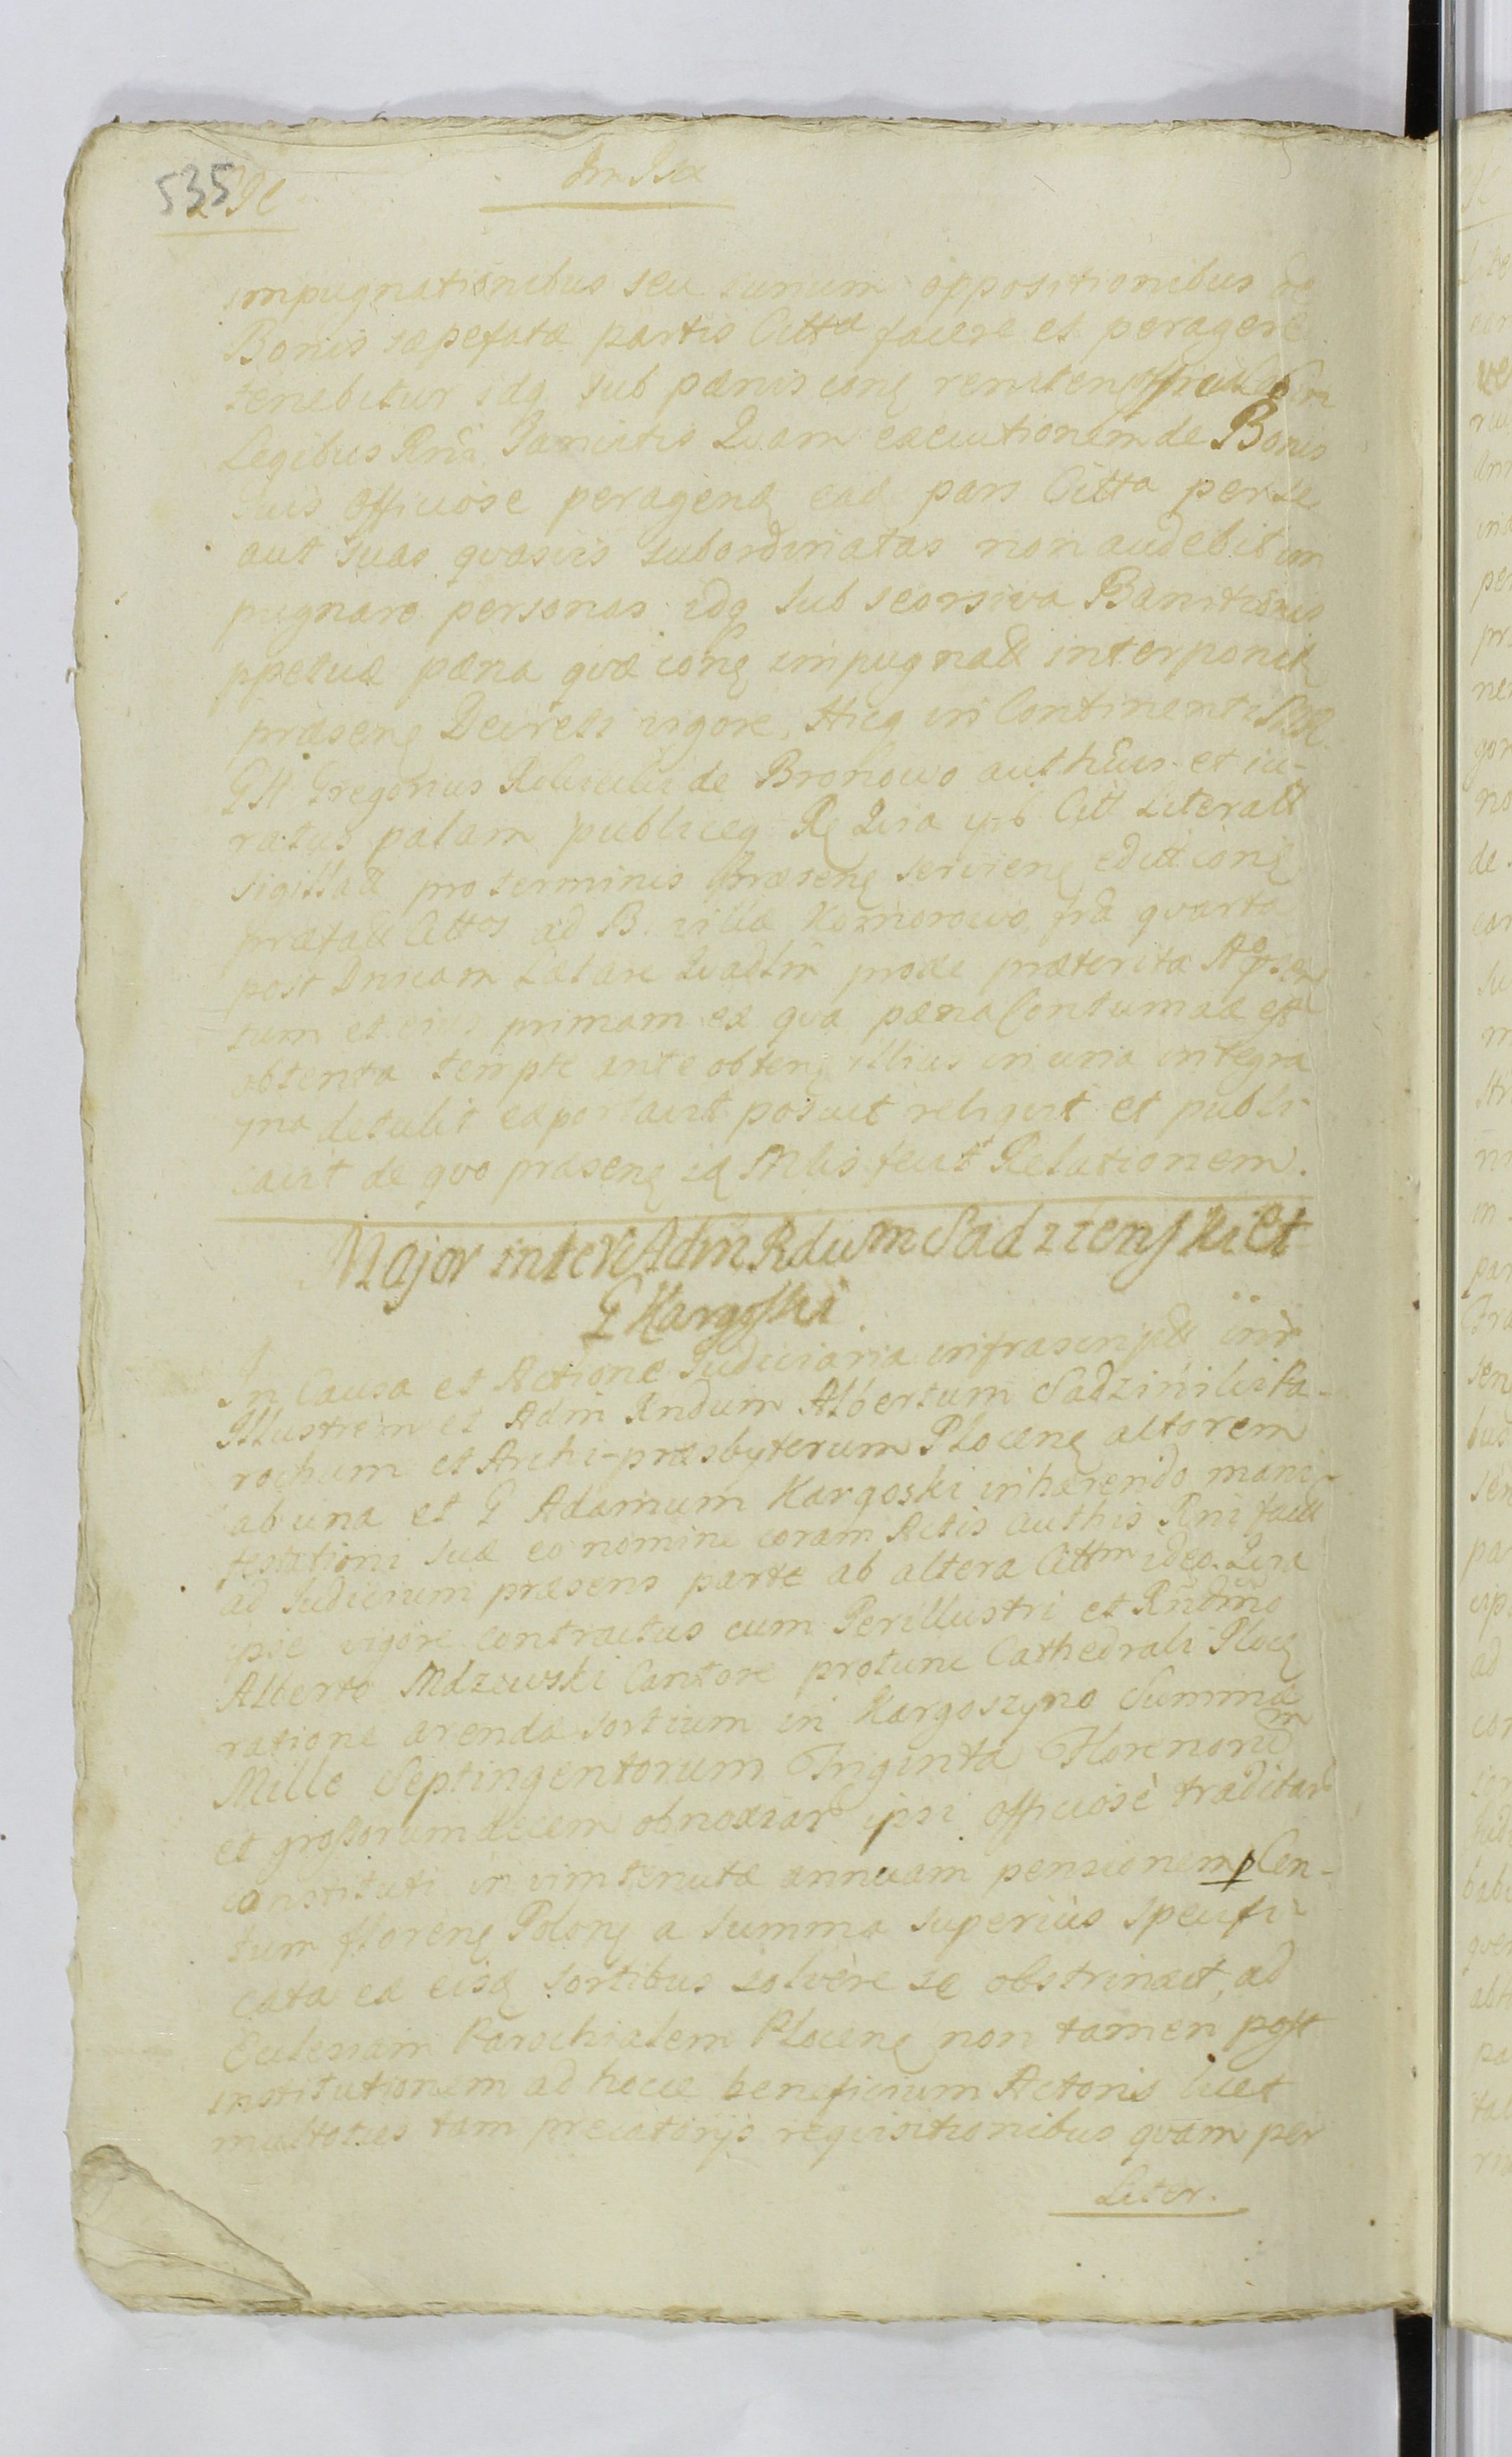 535
impugnationibus seu eunum oppositionibus de
Bonis sæpefatæ partis Cittæ facere et peragere
tenebitur idq sub pænis conq reniten
Legibus Rni Sancitis Quam executionem de Bonis
suis officiose peragenq eaq pars Citta per se
aut suas quasvis subordinatas non audebit im
pugnare personas idq sub seorsiva Banitionis
ppetuæ pæna quæ conq impugnatt interponitq
præsenq Decreti vigore, Hicq in Continenti
Gregorius de Bronowo authcus et iu-
ratus palam publiceq Rq Quia Citt Literatt
sigillatt pro terminis præsenq servienq edit conq
præfatt Cittos ad B. villæ Komorowo, fra quarta
post Dnicam Lætare Quadlm prodæ præterita
tum et eius primam ex qua pæna Contumaciæ est
obtenta tempre ante obtenq illius in curia integra
detulit exportavit posuit reliquit et publi
cavit de quo præsenq iq Mlis fecit Relationem.
Major inter Adm Rdum Sadzienski et
G Kargoski
In Causa et Actione Judiciaria infrascriptt intr
Illustrem et Adm Rndum Albertum Sadzinski Pa-
rochum et Archi-præsbyterum Plocenq actorem
ab una et G Adamum Kargoski inhærendo mani-
festationi suæ eo nomine coram Actis authis Rni factt
ad Judicium præsens parte ab altera Cittm ideo. Quia
ipse vigore contractus cum Perillustri et Rndmo
Alberto Mdzewski Cantore protunc Cathedrali Plocq
ratione arendæ sortium in Kargoszyno Summæ
Mille Septingentorum Triginta Florenorum
et grossorum decem obnoxiar ipsi officiosè traditar
constituti in vim tenutæ annuam pensionem p Cen-
tum florenq Polonq a summa superiùs specifi-
cata ex eisq sortibus solvere se obstrinxit, ad
Ecclesiam Parochialem Plocenq non tamen post
institutionem ad hocce beneficium Actoris licet
multoties tam precatorijs requisitionibus quam per
Liter.